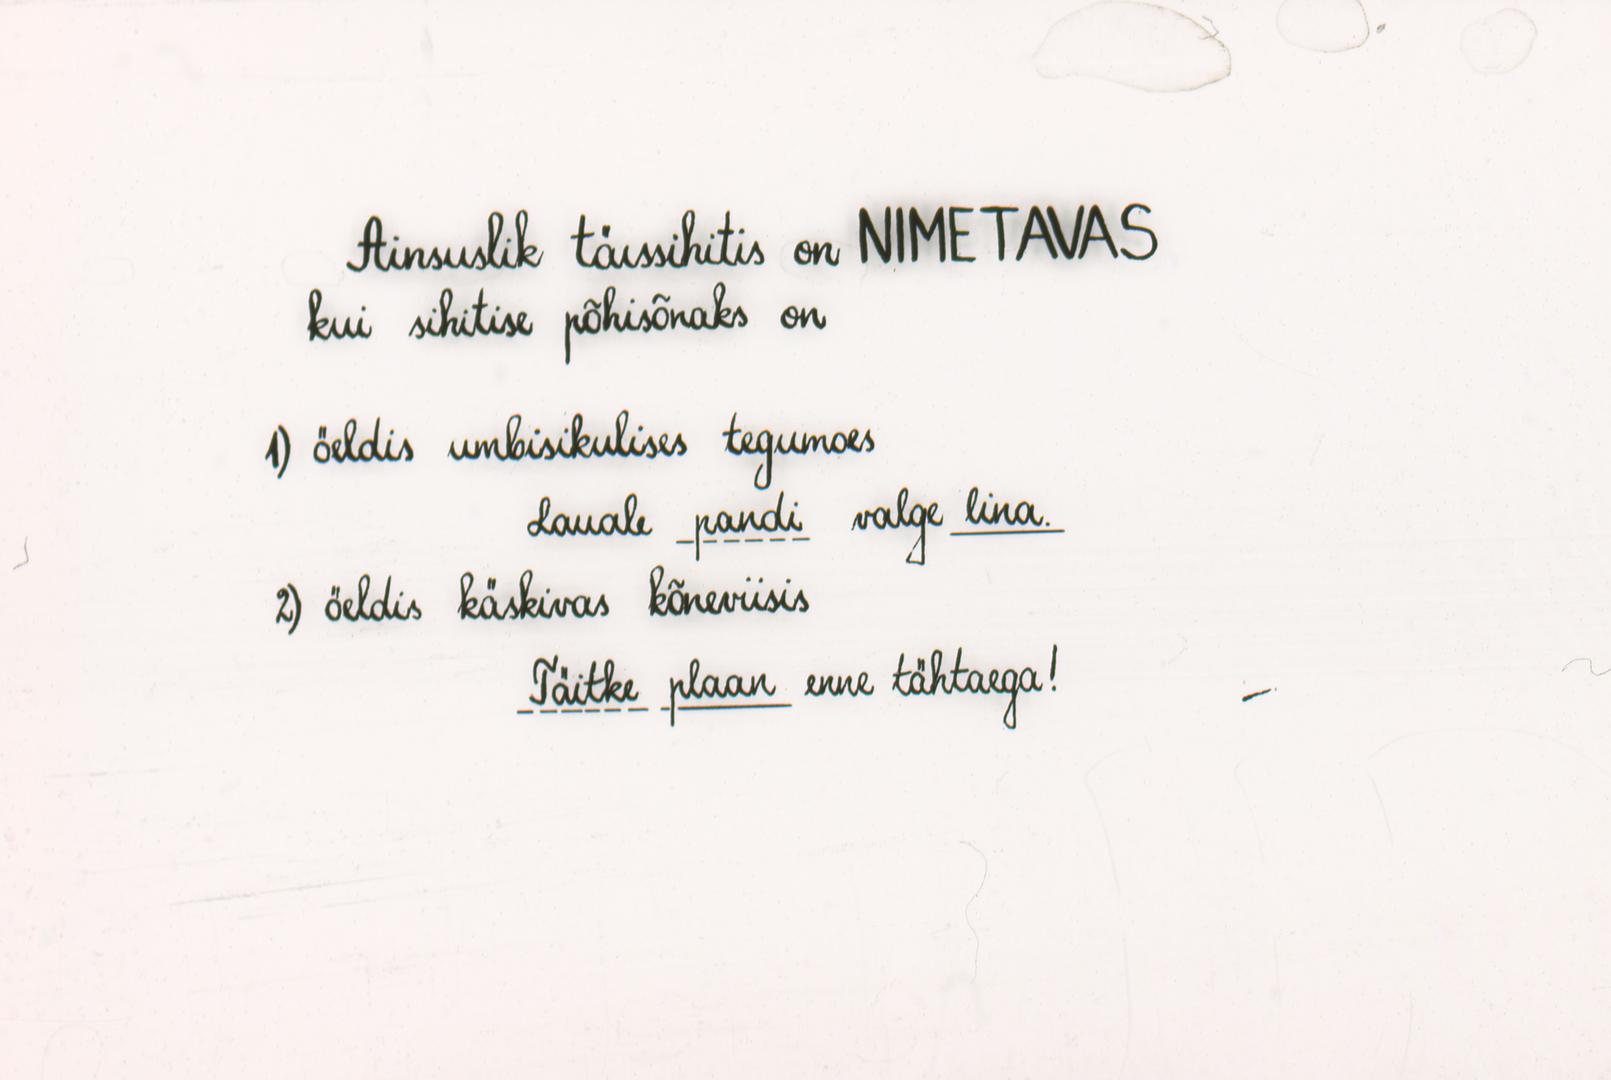 Ainsuslik täissihitis on NIMETAVAS
kui sihitise põhisõnaks on
1) öeldis umbisikulises tegumoes
Lauale pandi valge lina.
2) öeldis käskivas kõneviisis
Täitke plaan enne tähtaega!